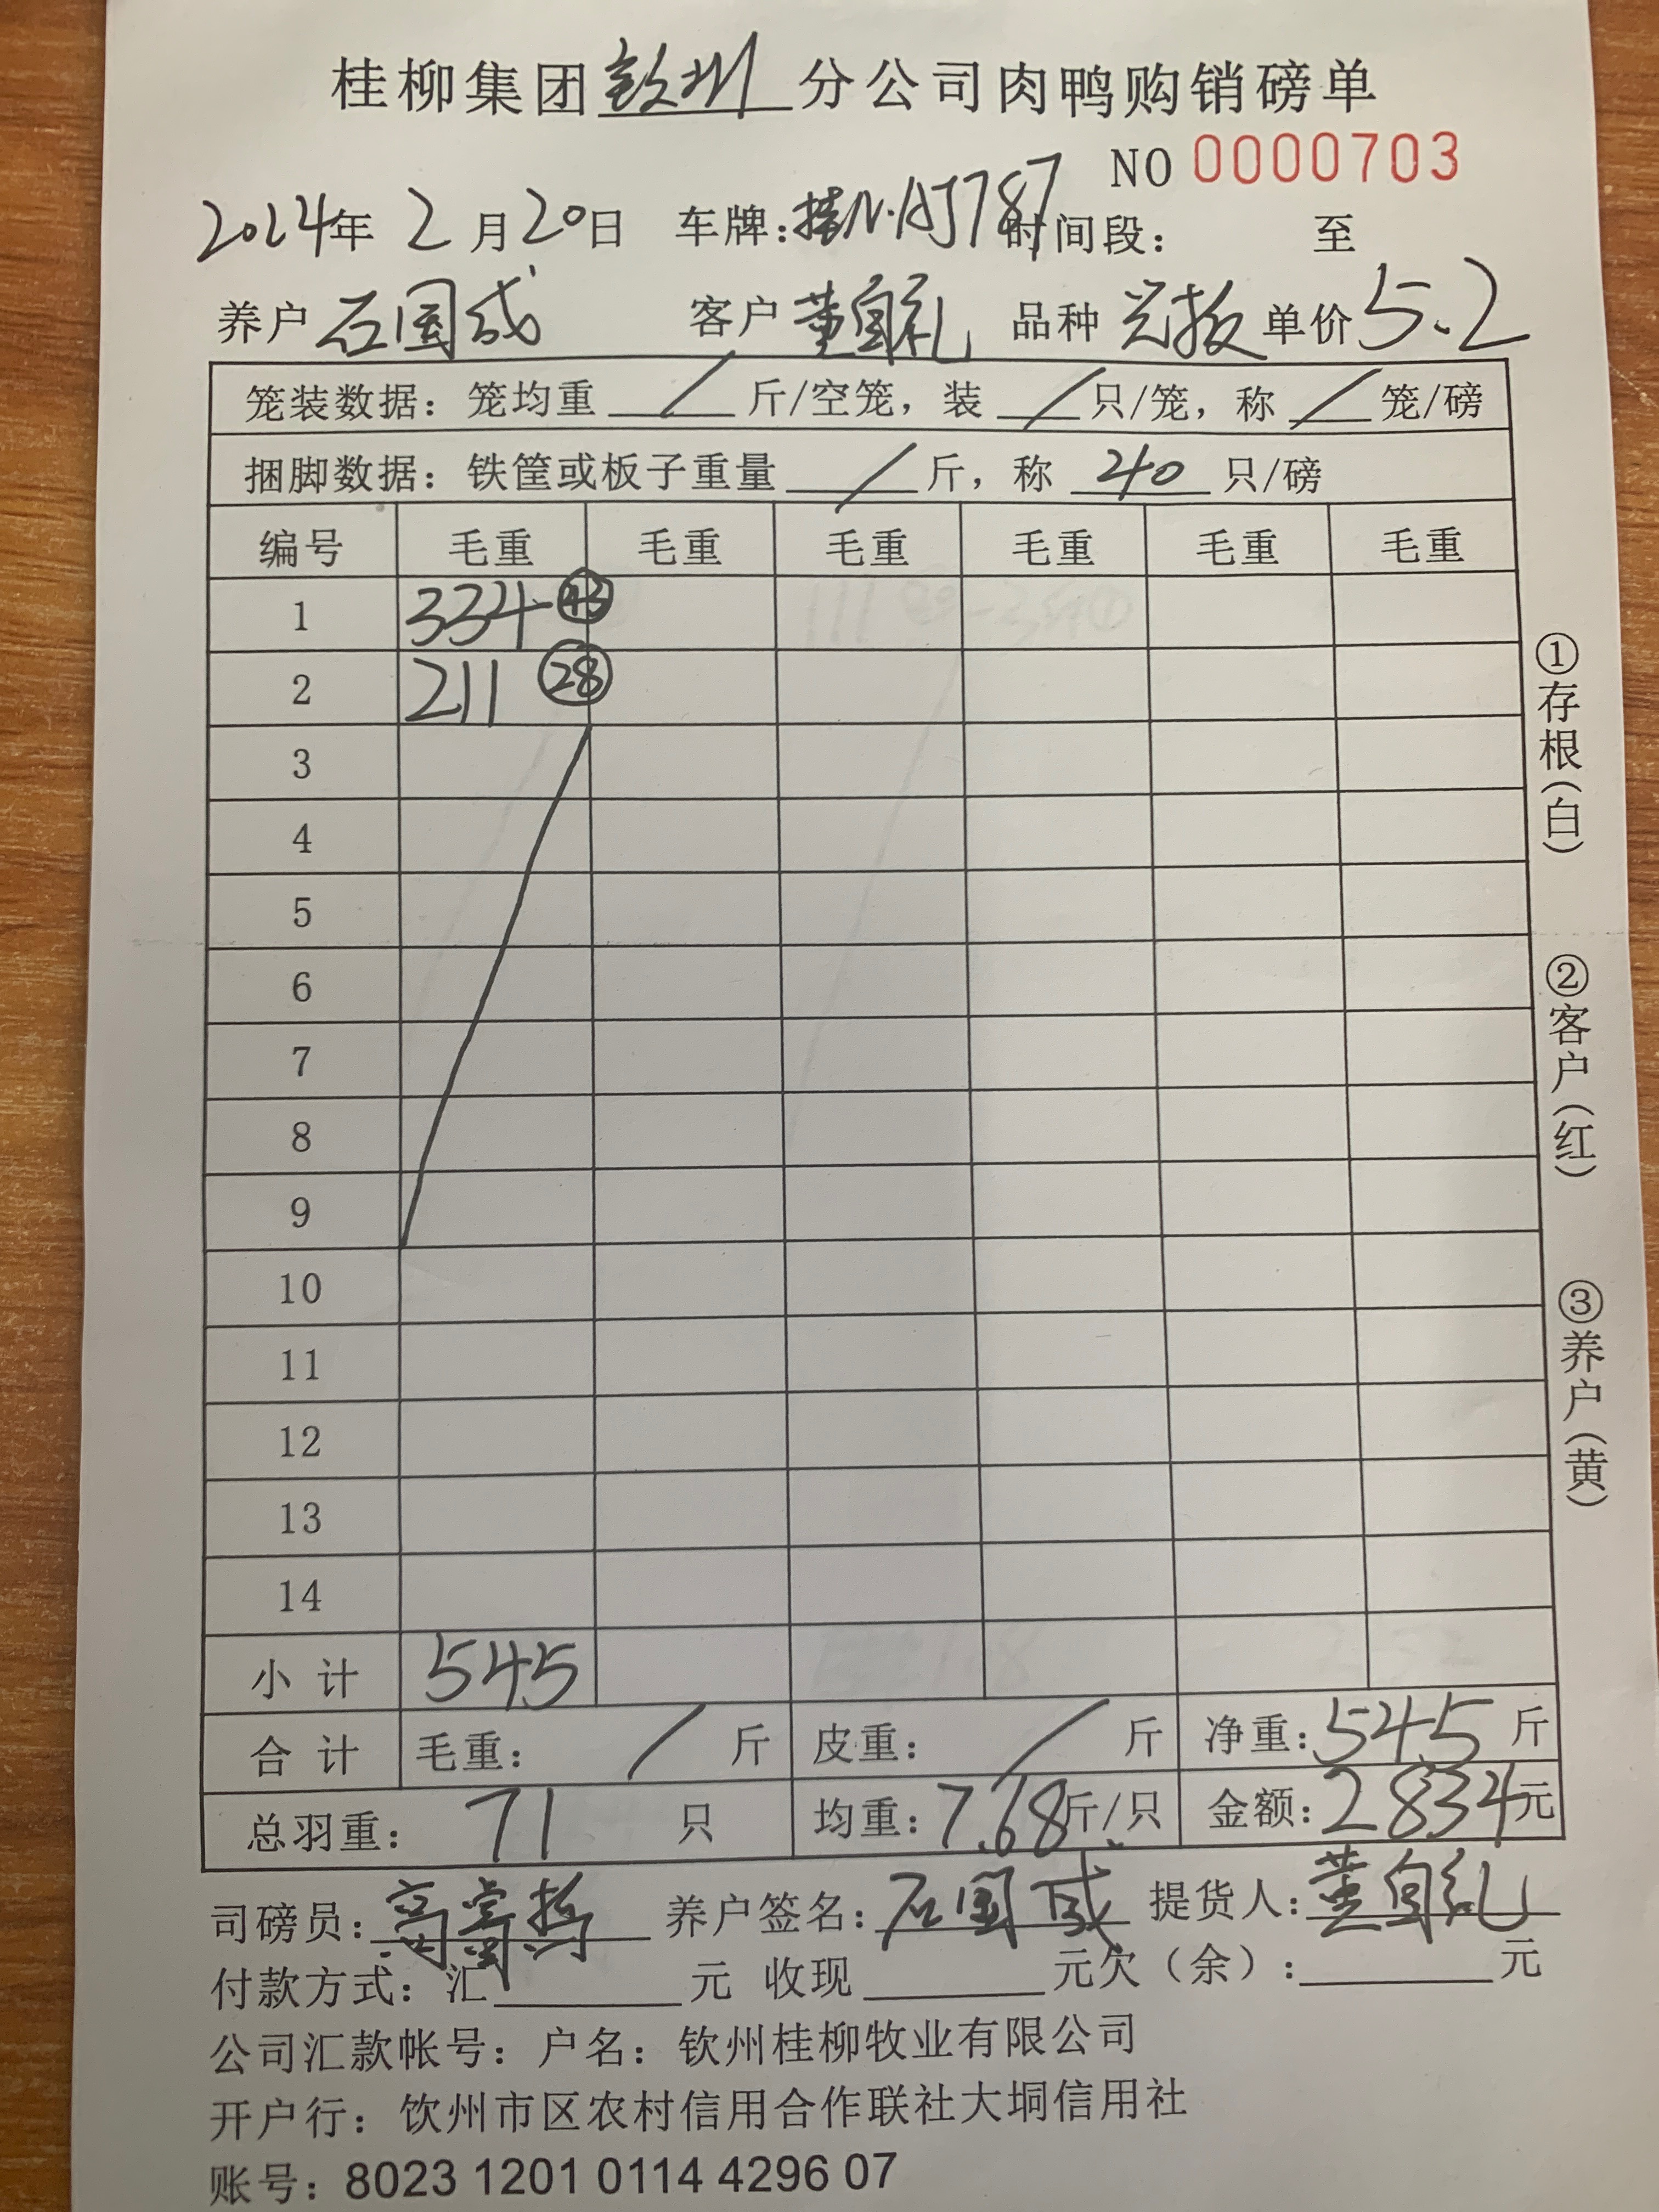 桂柳集团钦州分公司肉鸭购销磅单
NO 0000703
2024年 2月20日 车牌:桂N·AJ787 时间段: 至
养户 石国成 客户 董自礼 品种 单价5.2
笼装数据:笼均重 / 斤/空笼,装 / 只/笼,称 / 笼/磅
捆脚数据:铁筐或板子重量 / 斤,称 40 只/磅
编号 毛重 毛重 毛重 毛重 毛重 毛重
1 334 43
2 211 28
3
4
5
6
7
8
9
10
11
12
13
14
小计 545
合计 毛重: / 斤 皮重: / 斤 净重:545 斤
总羽重: 71 只 均重:7.68斤/只 金额:2834元
司磅员: 养户签名:石国成 提货人:董自礼
付款方式:汇 元 收现 元欠(余): 元
公司汇款帐号:户名:钦州桂柳牧业有限公司
开户行:钦州市区农村信用合作联社大垌信用社
账号:8023 1201 0114 4296 07
①存根(白)
②客户(红)
③养户(黄)